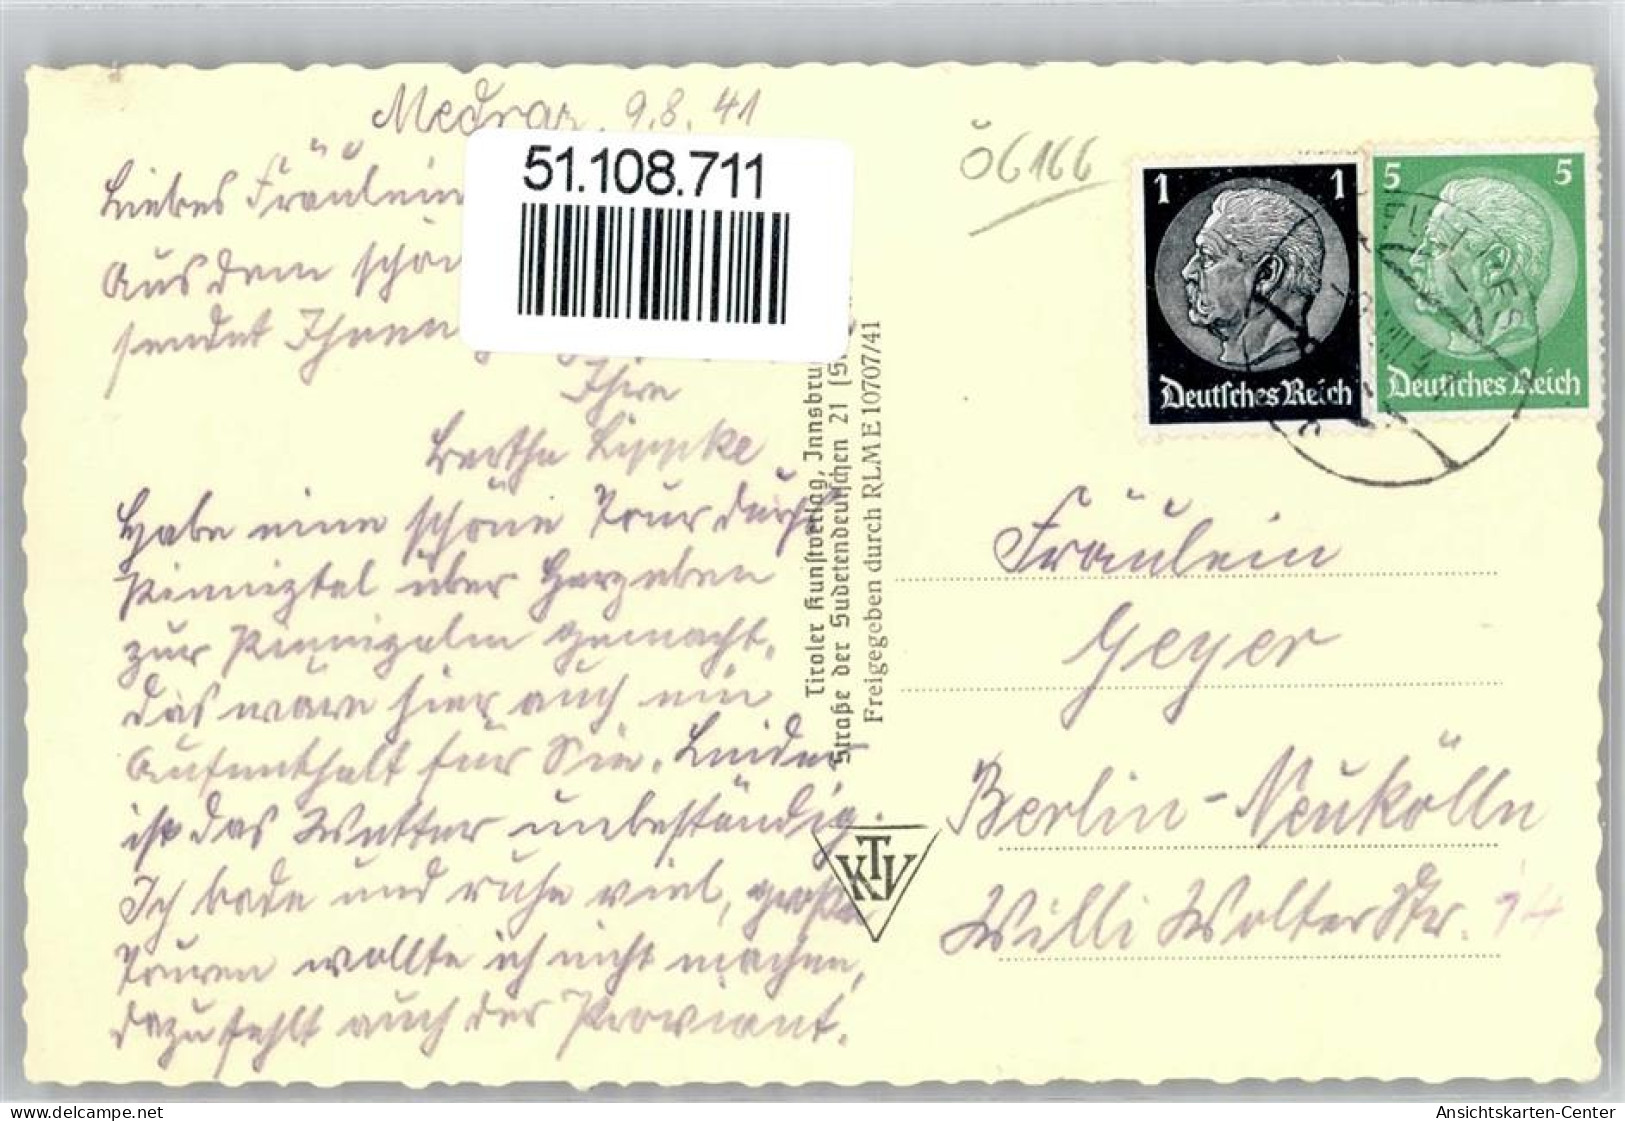 Medraz, 9.8.41
Liebes Fräulein
Aus dem schö
sendet Ihnen
Ihre
Bertha Lippke
Habe eine schöne Tour durchs
Pinnistal über
zur Pinnisalm gemacht.
Das wäre hier auch ein
Aufenthalt für Sie. Leider
ist das Wetter unbeständig.
Ich bade und ruhe viel, große
Touren wollte ich nicht machen,
dazu fehlt auch der Proviant.
51.108.711
Tiroler Kunstverlag, Innsbru
Straße der Sudetendeutschen 21 (S
Freigegeben durch RLM E 10707/41
KTV
Ö6166
1 1
Deutsches Reich
5 5
Deutsches Reich
Fräulein
Geyer
Berlin-Neukölln
Willi Walter Str. 14
oldthing.de
Ansichtskarten-Center